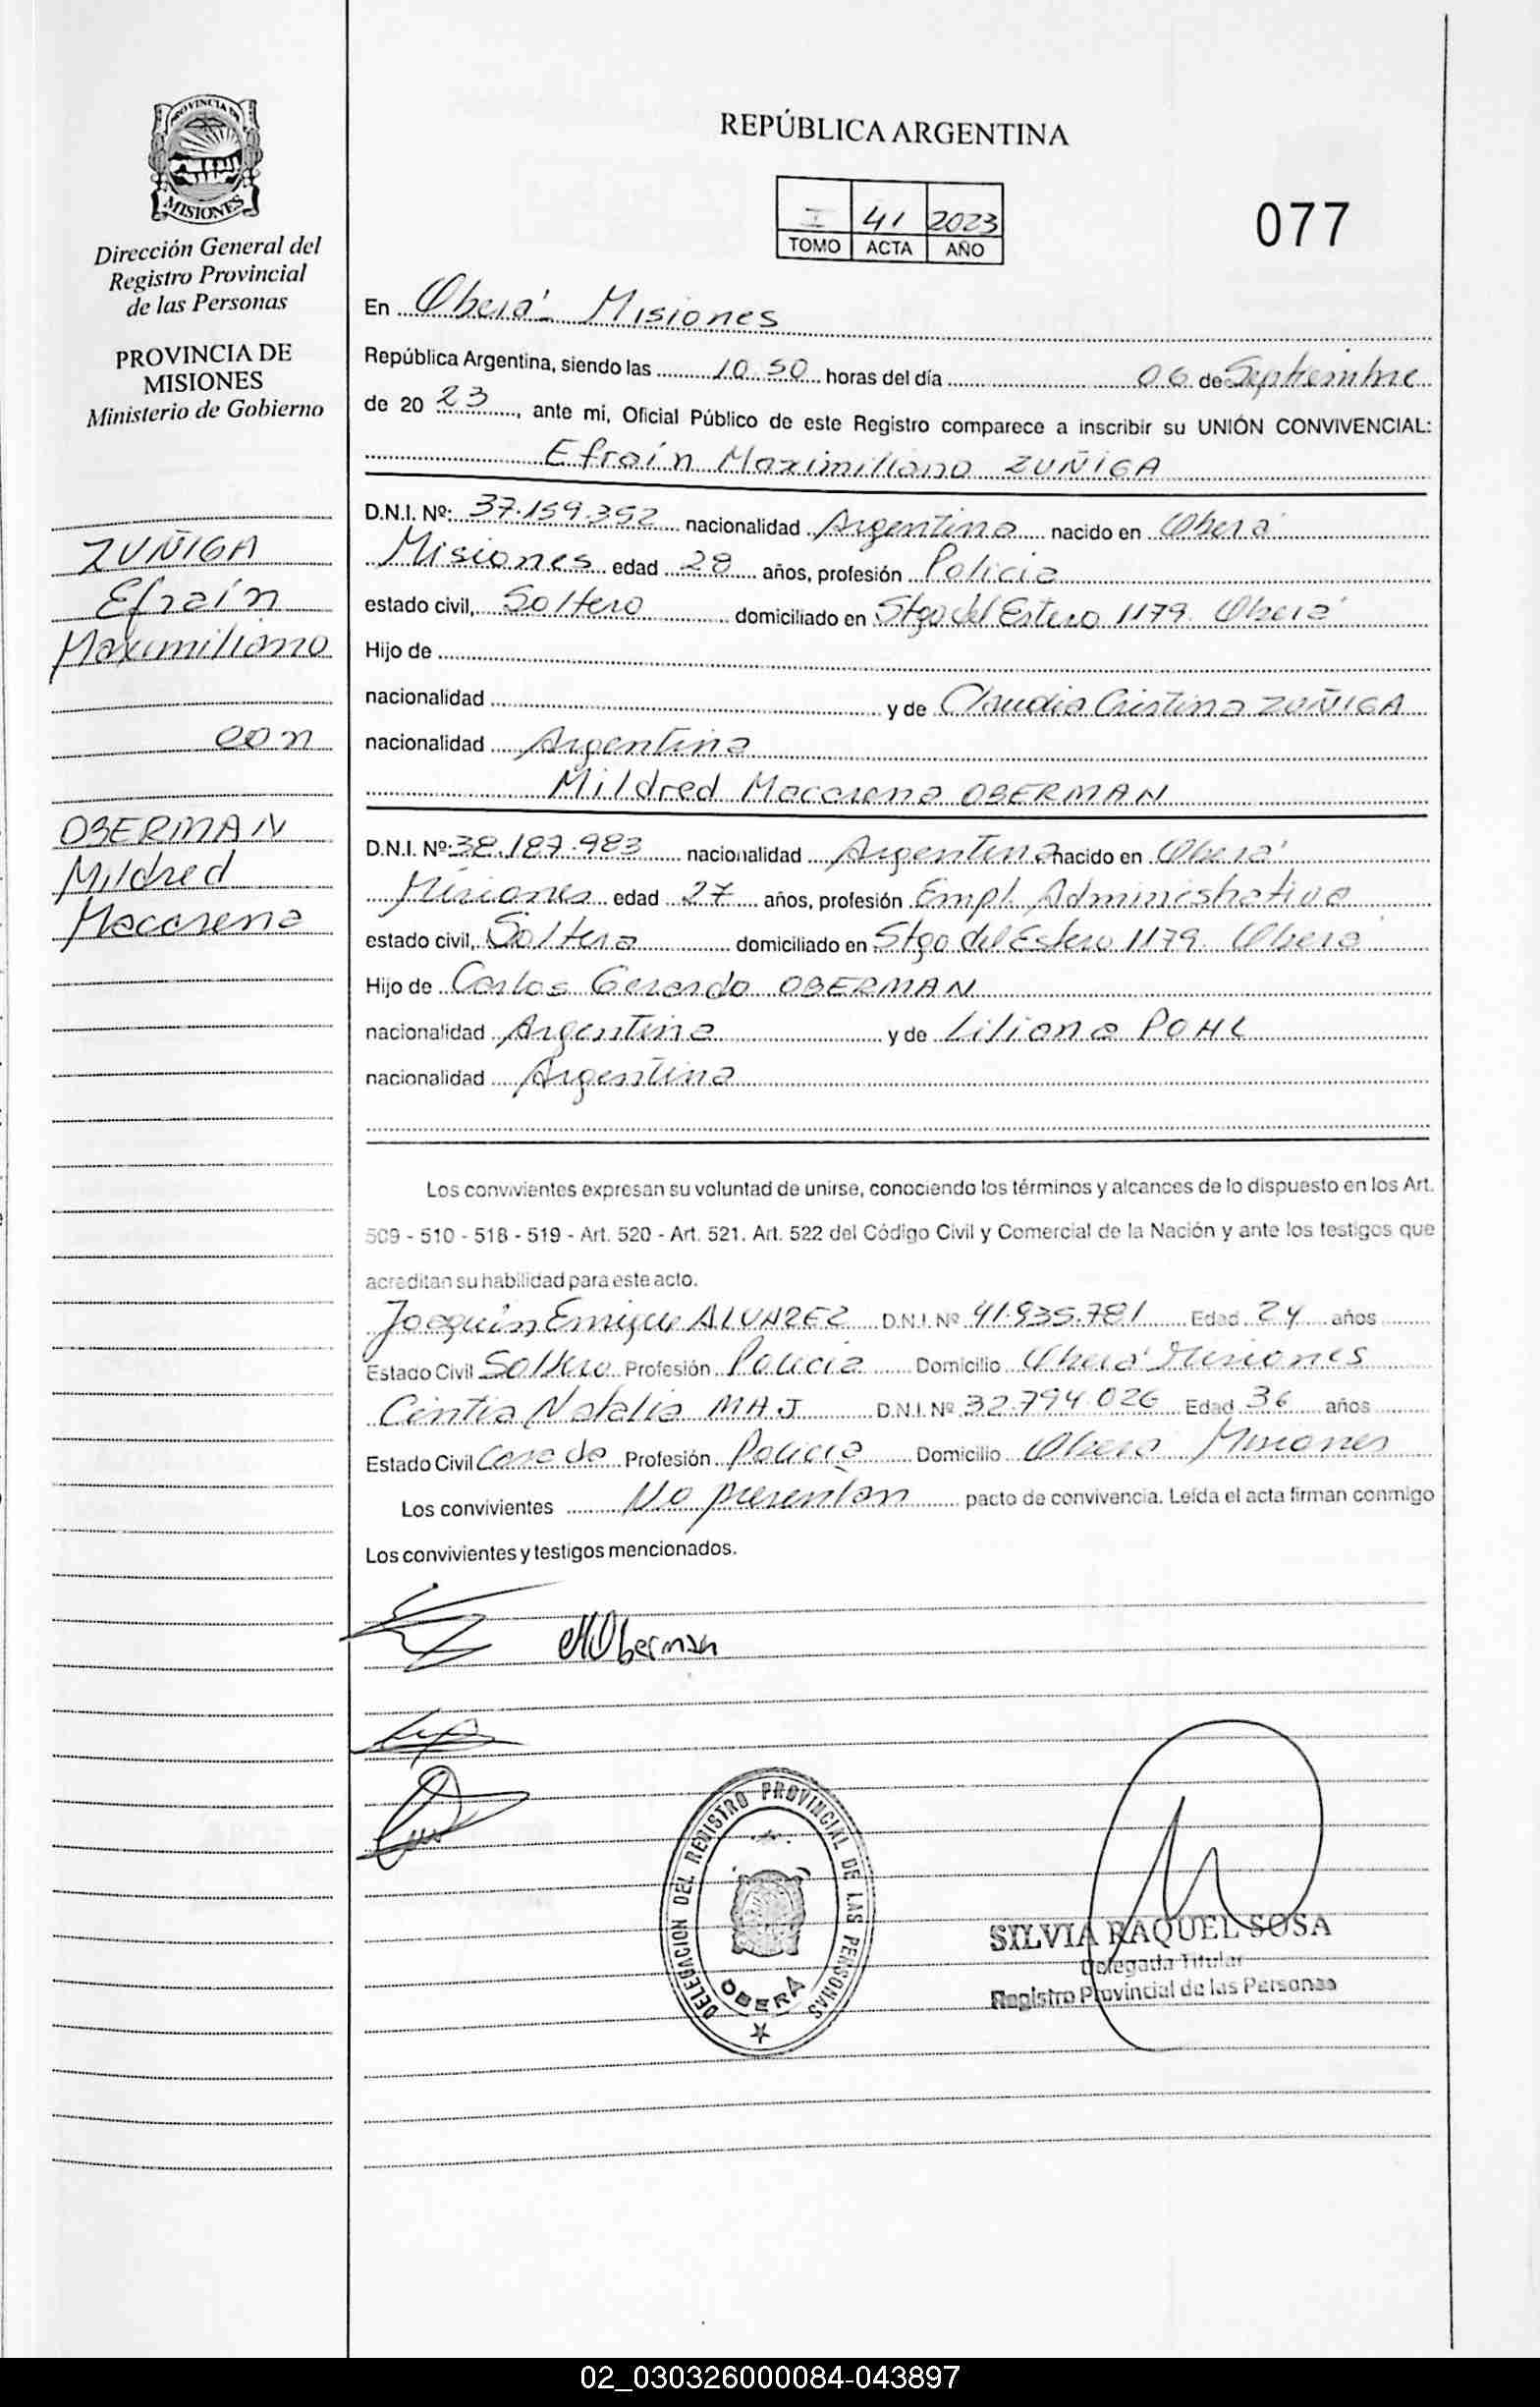 PROVINCIA DE
MISIONES
Dirección General del
Registro Provincial
de las Personas
PROVINCIA DE
MISIONES
Ministerio de Gobierno
ZUÑIGA
Efraín
Maximiliano
con
OBERMAN
Mildred
Macarena
REPÚBLICA ARGENTINA
I 41 2023
TOMO ACTA AÑO
077
En Oberá - Misiones
República Argentina, siendo las 10.50 horas del día 06 de Septiembre
de 20 23, ante mi, Oficial Público de este Registro comparece a inscribir su UNIÓN CONVIVENCIAL:
Efraín Maximiliano ZUÑIGA
D.N.I. Nº: 37.159.352 nacionalidad Argentina nacido en Oberá
Misiones edad 28 años, profesión Policia
estado civil, Soltero domiciliado en Stgo del Estero 1179. Oberá
Hijo de
nacionalidad y de Claudia Cristina ZUÑIGA
nacionalidad Argentina
Mildred Macarena OBERMAN
D.N.I. Nº: 38.187.983 nacionalidad Argentina nacido en Oberá
Misiones edad 27 años, profesión Empl. Administrativa
estado civil, Soltera domiciliado en Stgo del Estero 1179. Oberá
Hijo de Carlos Gerardo OBERMAN
nacionalidad Argentina y de Liliana POHL
nacionalidad Argentina
Los convivientes expresan su voluntad de unirse, conociendo los términos y alcances de lo dispuesto en los Art.
509 - 510 - 518 - 519 - Art. 520 - Art. 521. Art. 522 del Código Civil y Comercial de la Nación y ante los testigos que
acreditan su habilidad para este acto.
Joaquin Enrique ALVAREZ D.N.I. Nº 41.935.781 Edad 24 años
Estado Civil Soltero Profesión Policia Domicilio Oberá Misiones
Cintia Natalia MAJ D.N.I. Nº 32.794.026 Edad 36 años
Estado Civil Casada Profesión Policia Domicilio Oberá Misiones
Los convivientes No presentan pacto de convivencia. Leída el acta firman conmigo
Los convivientes y testigos mencionados.
MOberman
DELEGACION DEL REGISTRO PROVINCIAL DE LAS PERSONAS
OBERÁ
SILVIA RAQUEL SOSA
Delegada Titular
Registro Provincial de las Personas
02_030326000084-043897